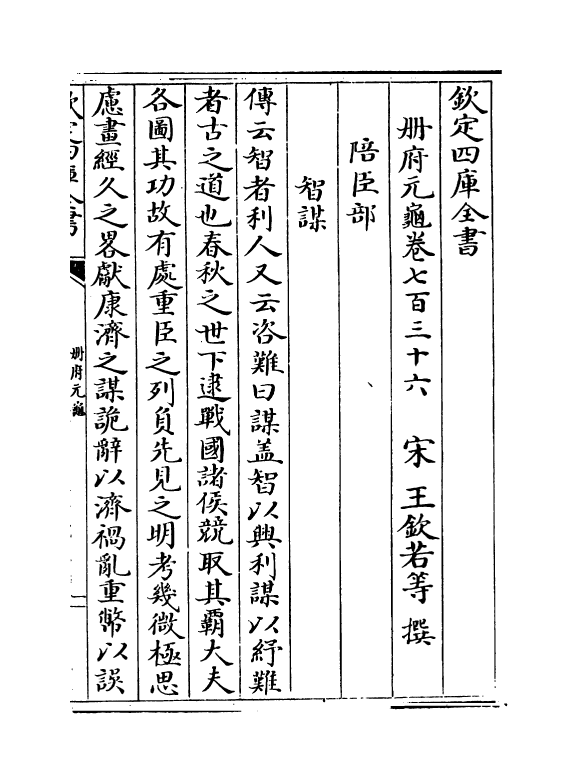 欽定四庫全書
册府元龜卷七百三十六　宋　王欽若等　撰
陪臣部
智謀
傳云智者利人又云咨難曰謀盖智以興利謀以紓難
者古之道也春秋之世下逮戰國諸侯競取其霸大夫
各圖其功故有處重臣之列負先見之明考幾微極思
慮畫經久之畧獻康濟之謀詭辭以濟禍亂重幣以誤
欽定四庫全書
册府元龜